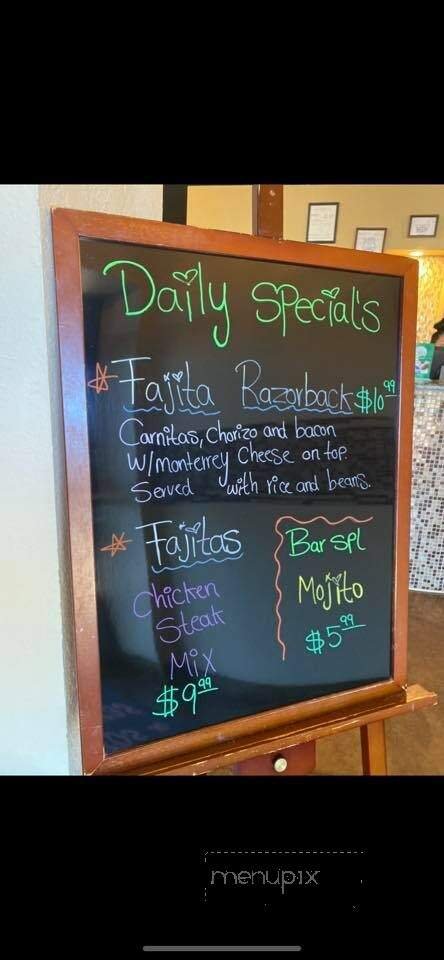 Daily Special's
Fajita Razorback $10 99
Carnitas, Chorizo and bacon
w/monterrey Cheese on top.
Served with rice and beans.
Fajitas
Chicken
Steak
Mix
$9 99
Bar spl
Mojito
$5 99
menupix